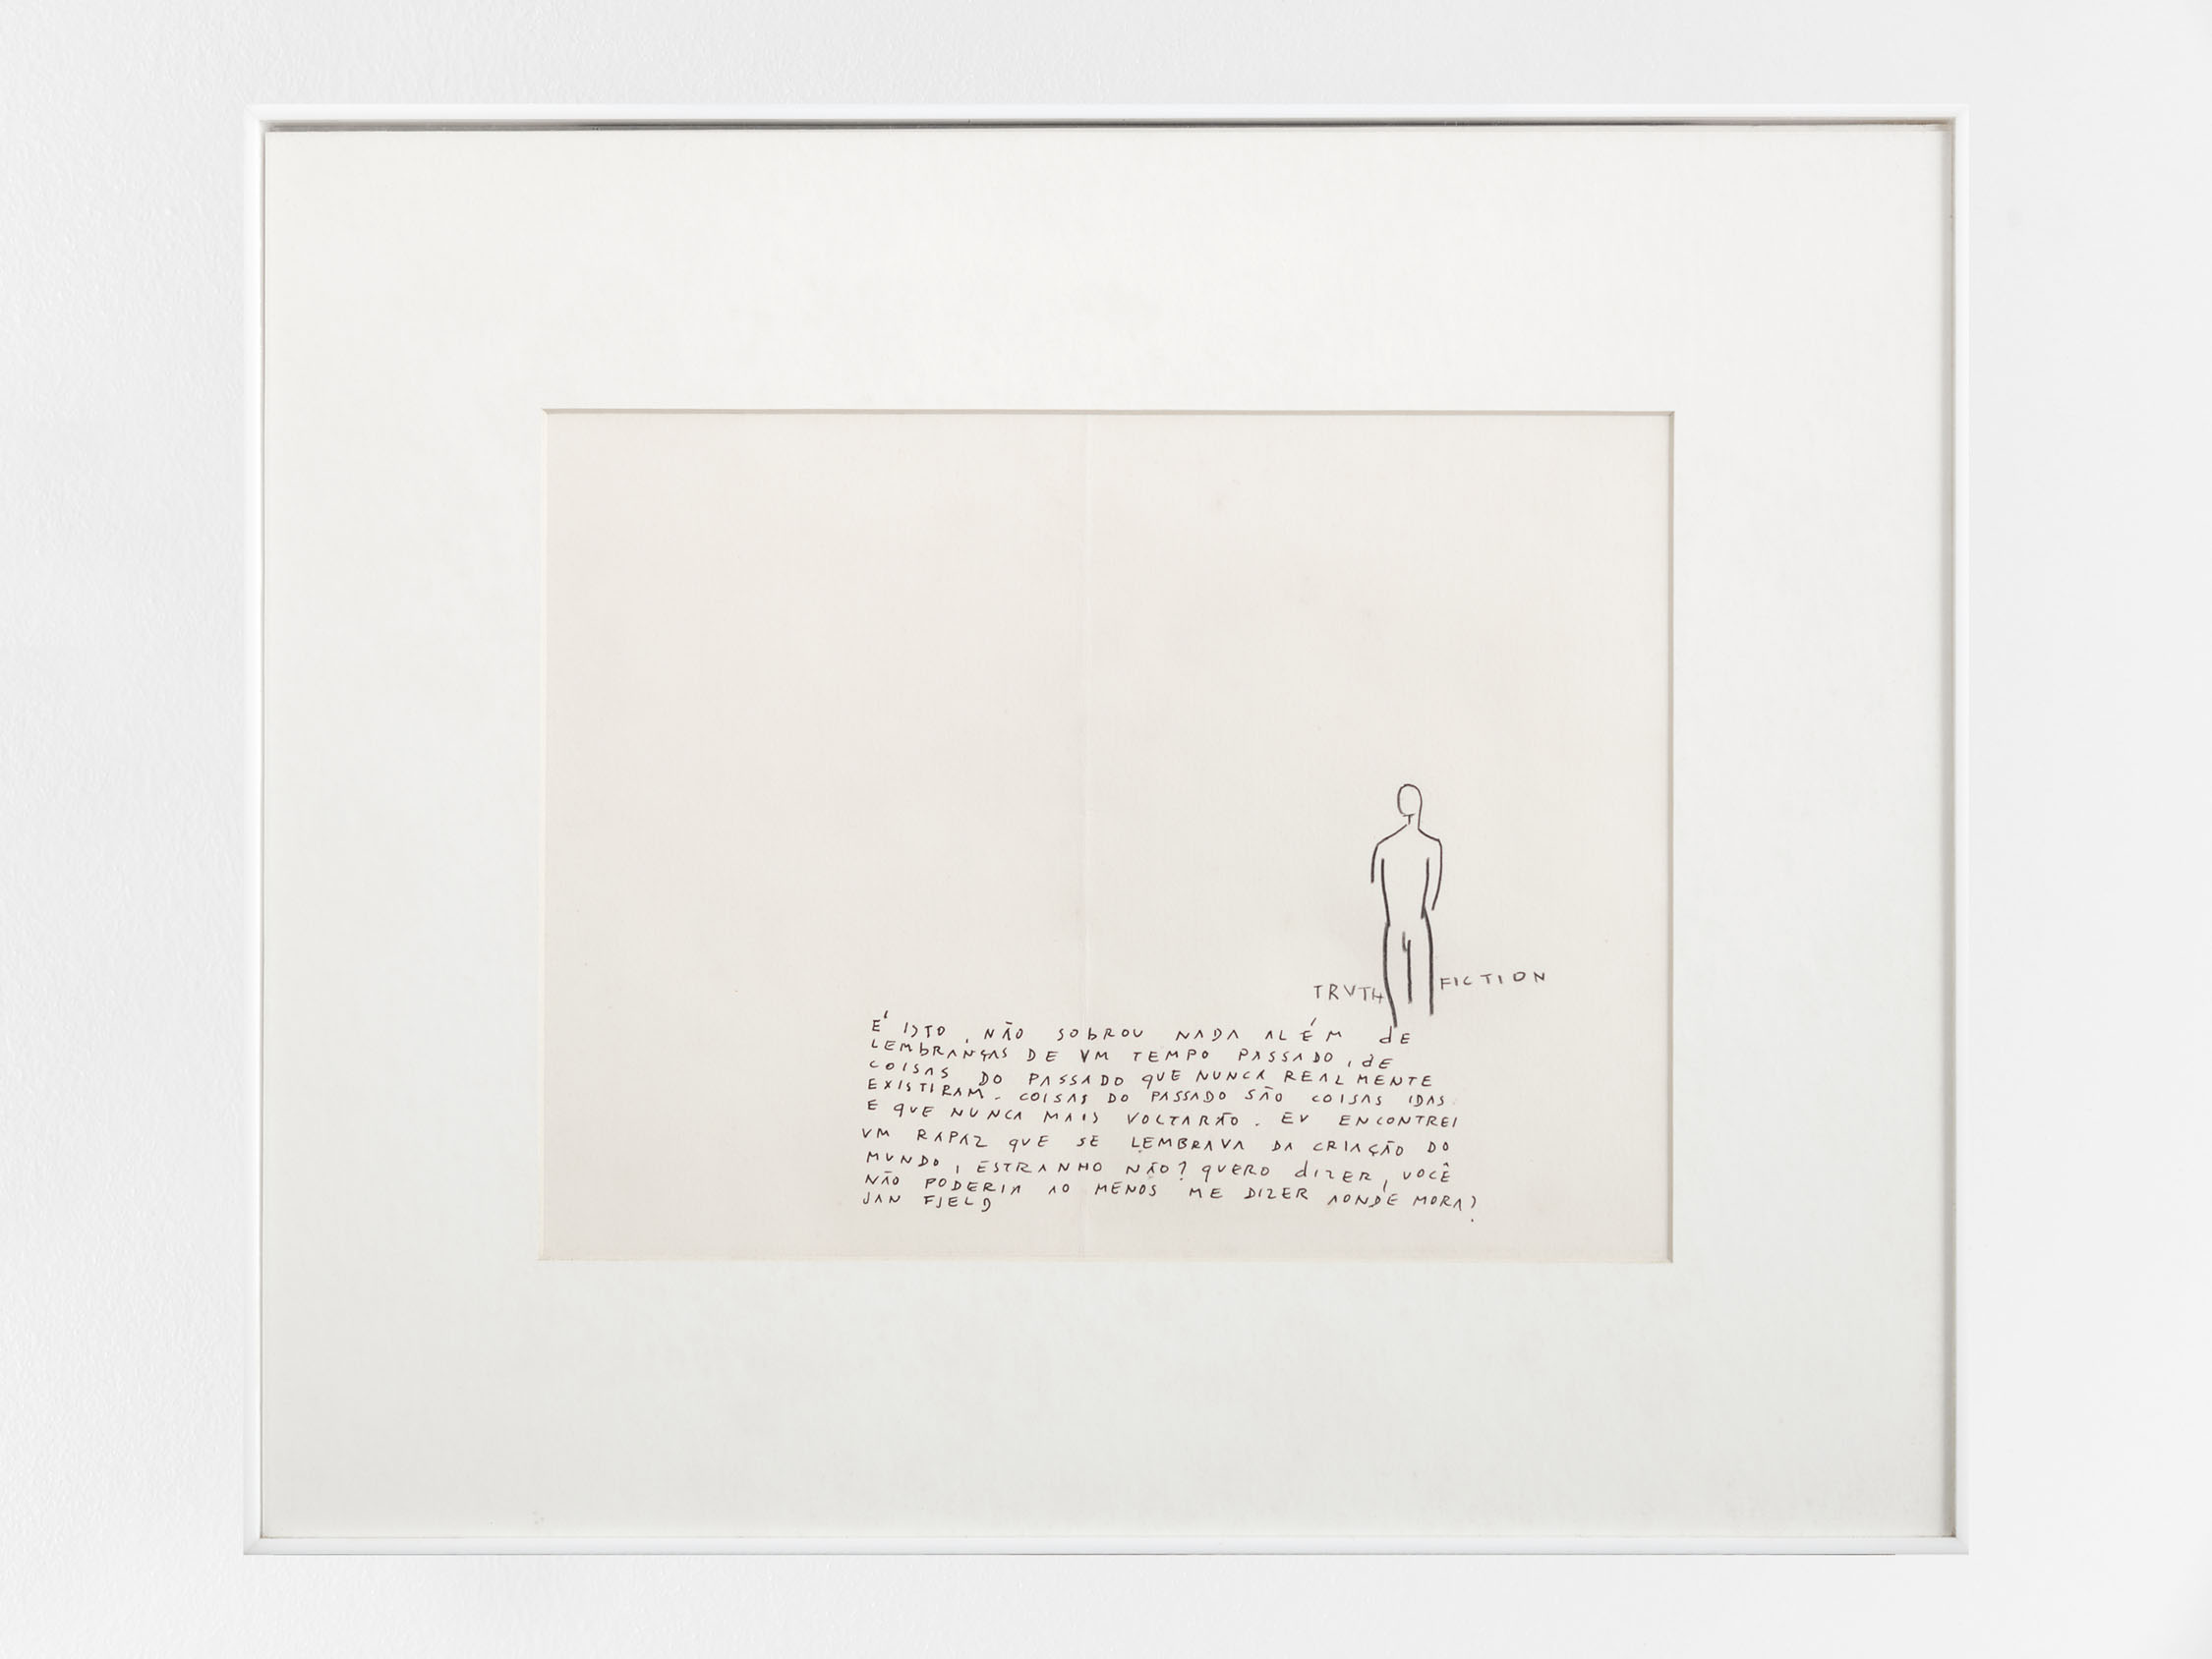 TRUTH FICTION
É ISTO, NÃO SOBROU NADA ALÉM dE
LEMBRANÇAS DE UM TEMPO PASSADO, dE
COISAS DO PASSADO QUE NUNCA REALMENTE
EXISTIRAM. COISAS DO PASSADO SÃO COISAS IDAS
E QUE NUNCA MAIS VOLTARÃO. EU ENCONTREI
UM RAPAZ QUE SE LEMBRAVA DA CRIAÇÃO DO
MUNDO, ESTRANHO NÃO? QUERO dIZER, VOCÊ
NÃO PODERIA AO MENOS ME DIZER AONDE MORA?
JAN FJELD